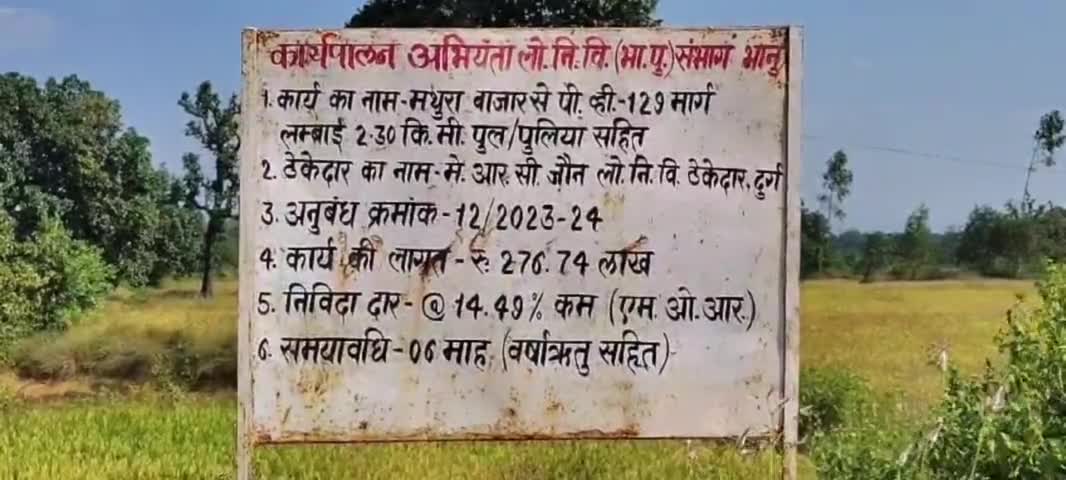 कार्यपालन अभियंता लो.नि.वि.(भा.पु.)संभाग भानु
1. कार्य का नाम-मथुरा बाजार से पी. व्ही.-129 मार्ग
लम्बाई 2.30 कि.मी. पुल/पुलिया सहित
2. ठेकेदार का नाम-मे. आर. सी. जौन लो.नि.वि. ठेकेदार, दुर्ग
3. अनुबंध क्रमांक-12/2023-24
4. कार्य की लागत-रु. 276.74 लाख
5. निविदा दार-@ 14.49% कम (एम. ओ. आर.)
6. समयावधि-06 माह, (वर्षाऋतु सहित)